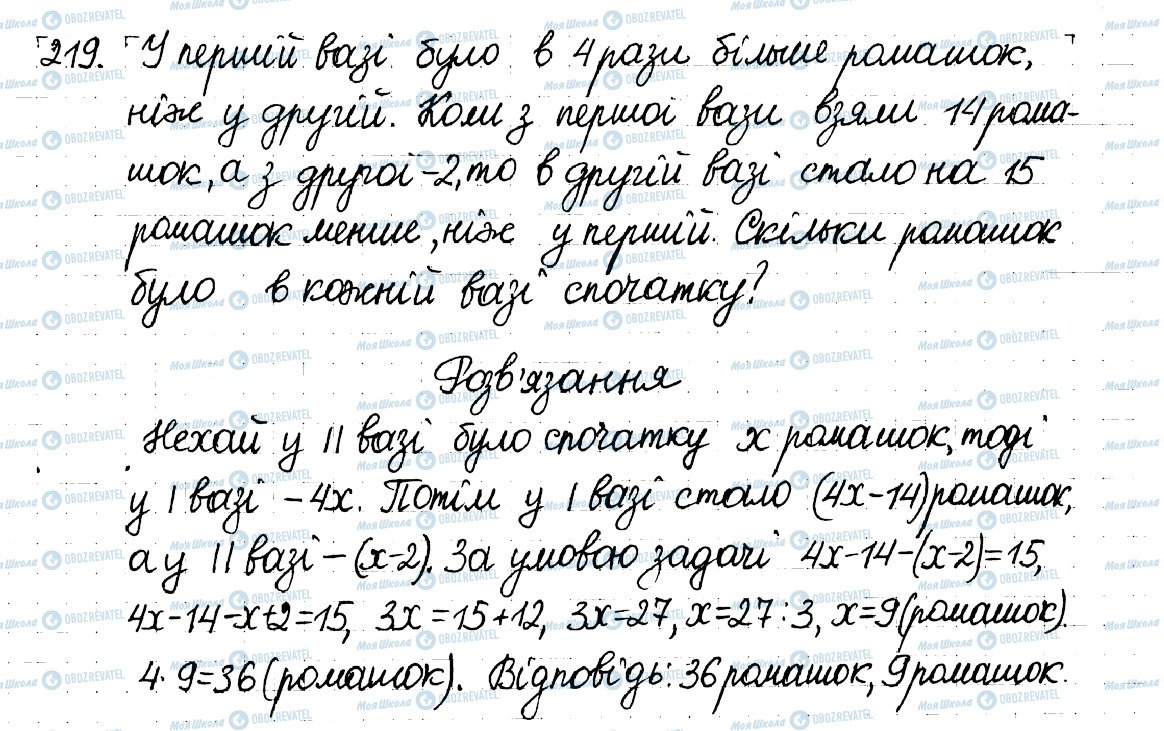 219. У першій вазі було в 4 рази більше ромашок,
ніж у другій. Коли з першої вази взяли 14 рома-
шок, а з другої - 2, то в другій вазі стало на 15
ромашок менше, ніж у першій. Скільки ромашок
було в кожній вазі спочатку?
Розв'язання
Нехай у II вазі було спочатку x ромашок, тоді
у I вазі - 4x. Потім у I вазі стало (4x-14) ромашок,
а у II вазі - (x-2). За умовою задачі 4x-14-(x-2)=15,
4x-14-x+2=15, 3x=15+12, 3x=27, x=27:3, x=9 (ромашок).
4·9=36 (ромашок). Відповідь: 36 ромашок, 9 ромашок.